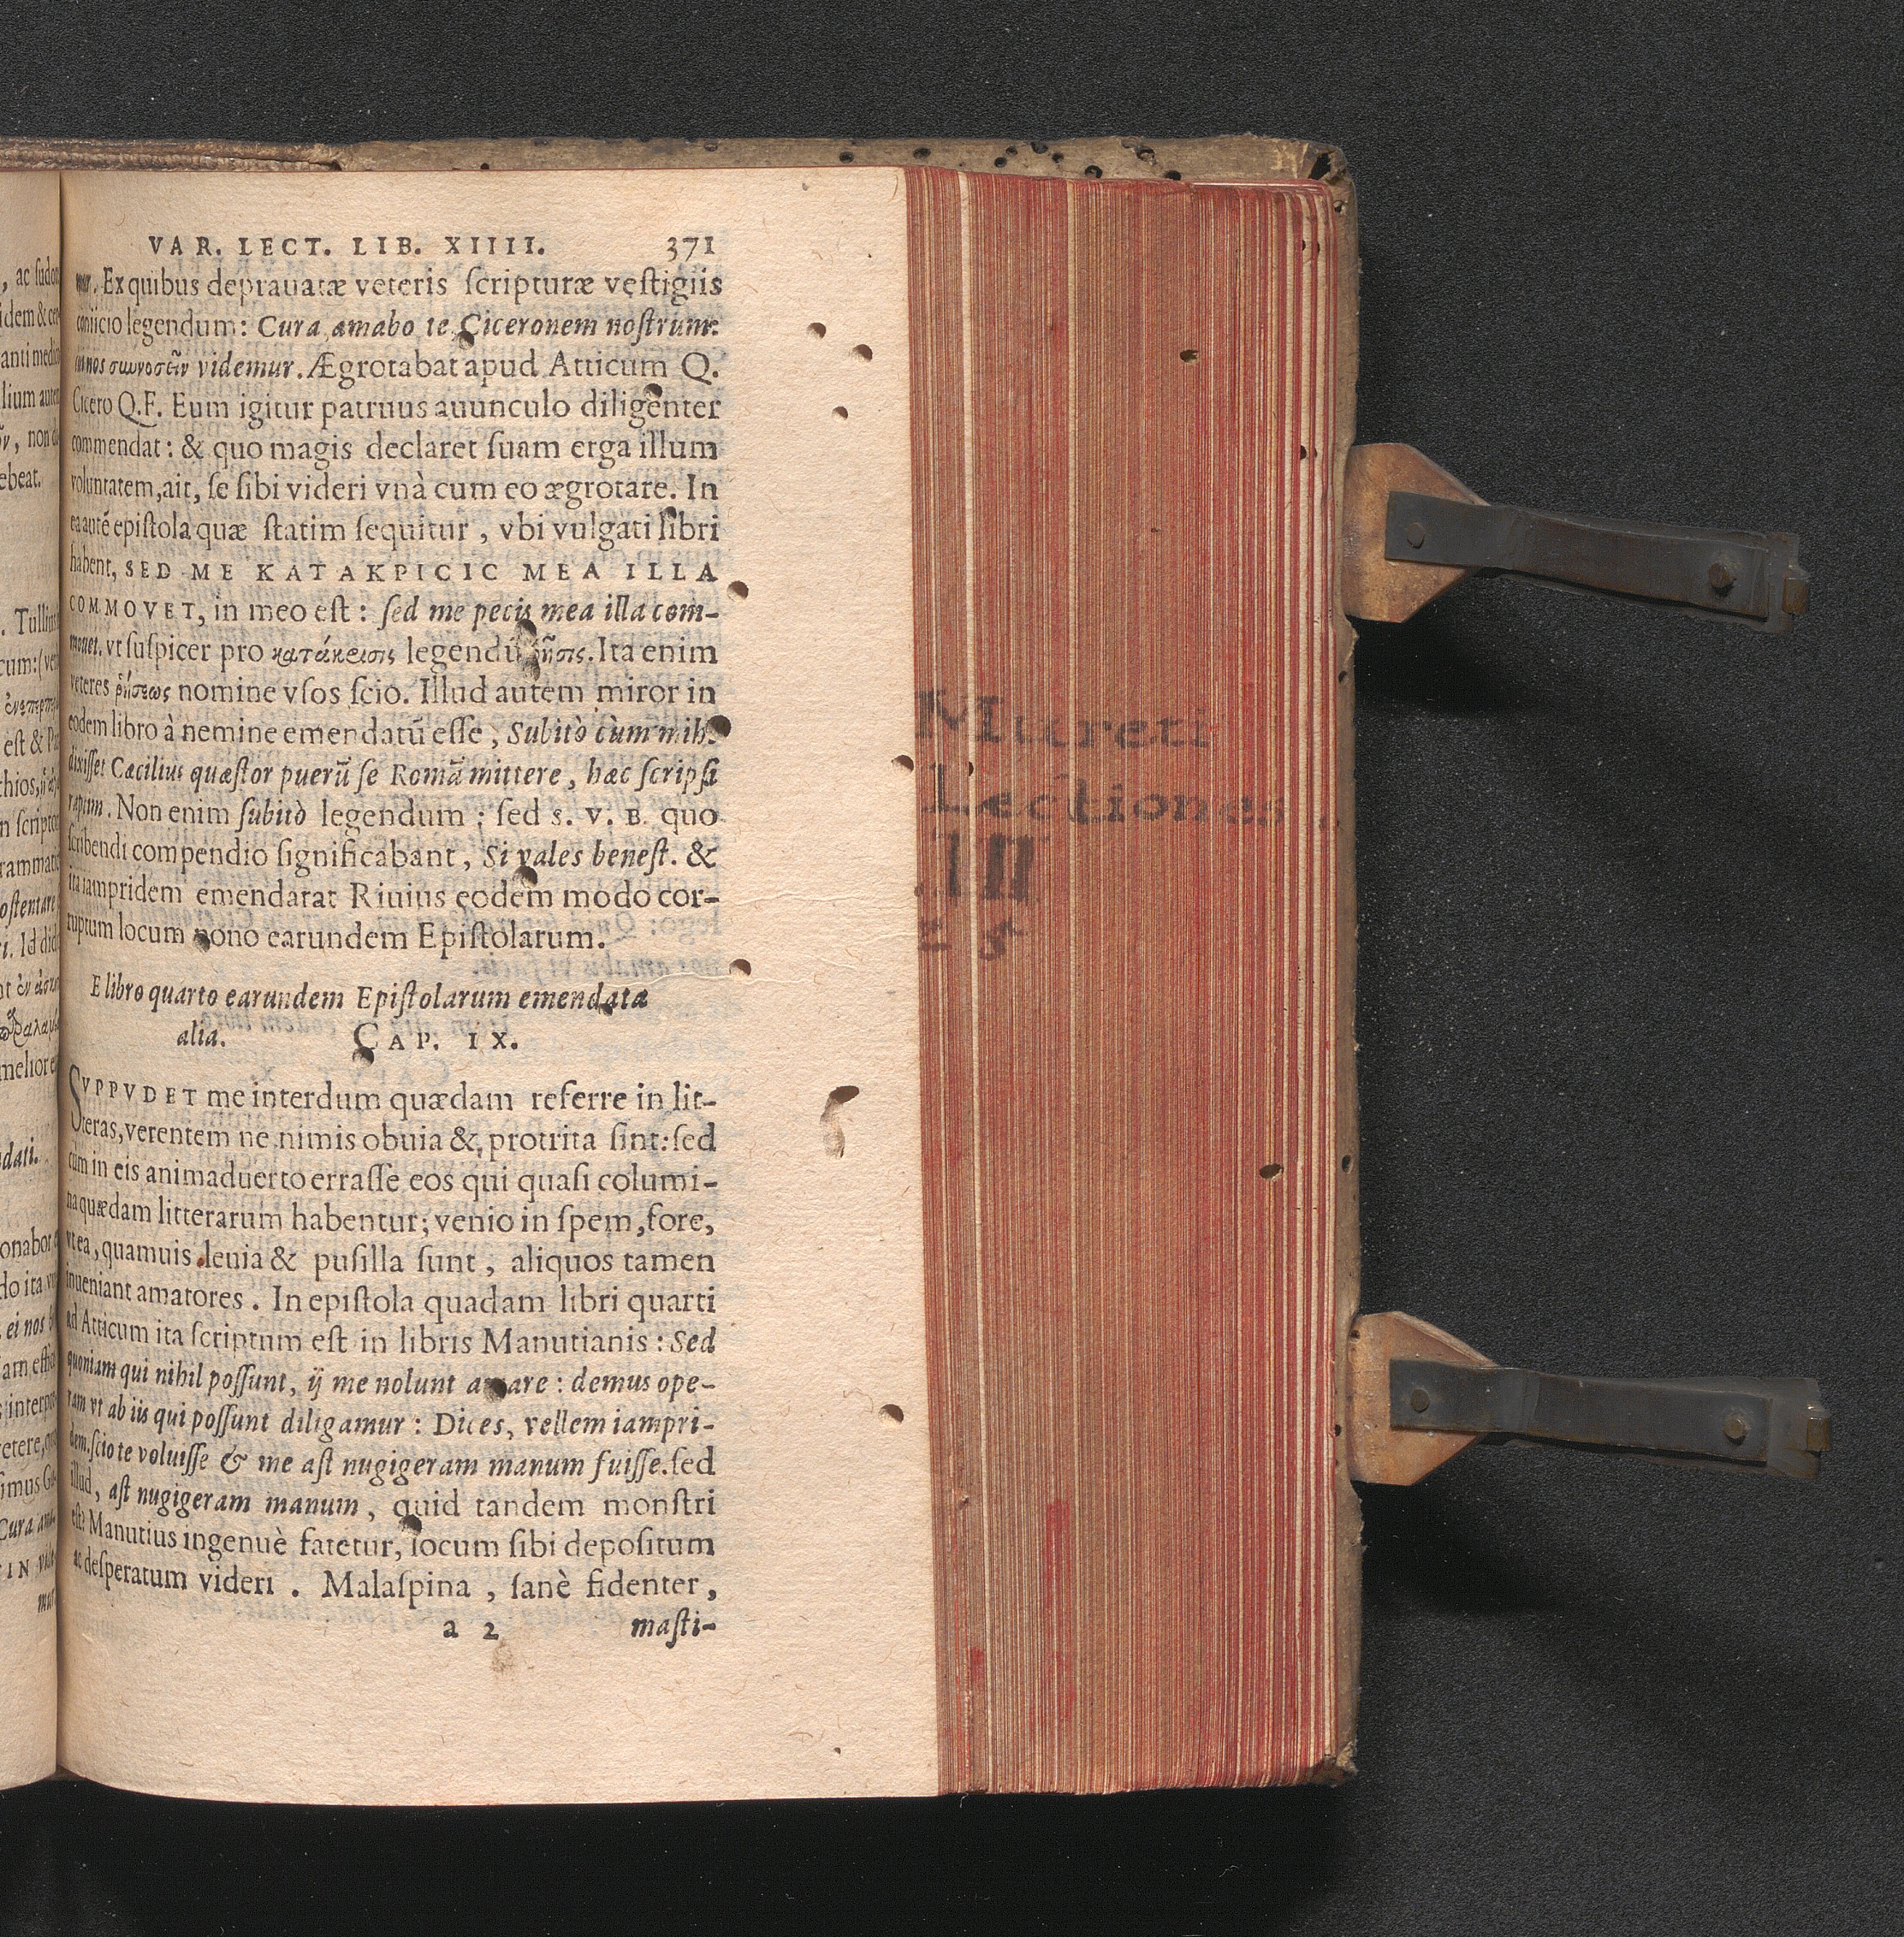 VAR. LECT. LIB. XIIII. 371
mur. Ex quibus deprauatæ veteris ſcripturæ veſtigiis
coniicio legendum: Cura, amabo te, Ciceronem noſtrum:
ei nos συννοσεῖν videmur. Ægrotabat apud Atticum Q.
Cicero Q.F. Eum igitur patruus auunculo diligenter
commendat: & quo magis declaret ſuam erga illum
voluntatem, ait, ſe ſibi videri vnà cum eo ægrotare. In
ea autē epiſtola quæ ſtatim ſequitur, vbi vulgati libri
habent, SED ME KATAKPICIC MEA ILLA
COMMOVET, in meo eſt: ſed me pecis mea illa com-
mouet. vt ſuſpicer pro κατάκρισις legendū ῥῆσις. Ita enim
veteres ῥήσεως nomine vſos ſcio. Illud autem miror in
eodem libro à nemine emendatū eſſe, Subitò cùm mihi
dixiſſet Cæcilius quæſtor puerū ſe Romā mittere, hæc ſcripſi
raptim. Non enim ſubitò legendum; ſed S. V. B. quo
ſcribendi compendio ſignificabant, Si vales beneſt. &
ita iampridem emendarat Riuius eodem modo cor-
ruptum locum nono earundem Epiſtolarum.
E libro quarto earundem Epiſtolarum emendata
alia. CAP. IX.
SVPPVDET me interdum quædam referre in lit-
teras, verentem ne nimis obuia & protrita ſint: ſed
cùm in eis animaduerto erraſſe eos qui quaſi columi-
na quædam litterarum habentur; venio in ſpem, fore,
vt ea, quamuis leuia & puſilla ſunt, aliquos tamen
inueniant amatores. In epiſtola quadam libri quarti
ad Atticum ita ſcriptum eſt in libris Manutianis: Sed
quoniam qui nihil poſſunt, ij me nolunt amare: demus ope-
ram vt ab iis qui poſſunt diligamur: Dices, vellem iampri-
dem. ſcio te voluiſſe & me aſt nugigeram manum fuiſſe. ſed
illud, aſt nugigeram manum, quid tandem monſtri
eſt? Manutius ingenuè fatetur, locum ſibi depoſitum
ac deſperatum videri. Malaſpina, ſanè fidenter,
a 2 maſti-
Mureti
Lectiones